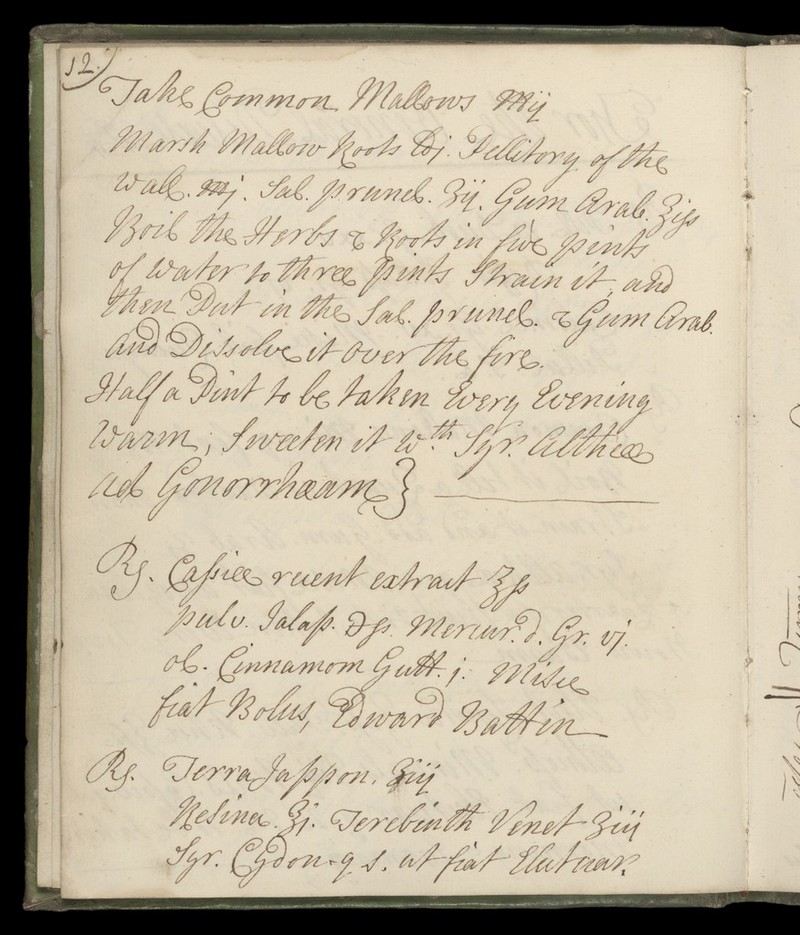 12.
Take Common Mallows Mij
Marsh Mallow Roots ℔j. Pellitory of the
Wall. Mj. Sal. prunel. ʒij. Gum Arab. ʒijss
Boil the Herbs & Roots in five pints
of Water to three pints Strain it and
then Put in the Sal. prunel. & Gum Arab.
And Dissolve it over the fire.
Half a Pint to be taken Every Evening
Warm; Sweeten it wth. Syr. Altheæ
ad Gonorrhæam}
℞. Cassiæ recent extract ℥ss
pulv. Jalap. ℈ss. Mercur. d. Gr. vj.
ol. Cinnamom Gutt. j. Misce
fiat Bolus, Edward Battin
℞. Terra Jappon. ʒiij
Resinæ. ʒj. Terebinth Venet ʒiij
Syr. Cydon. q s. ut fiat Elutuar.